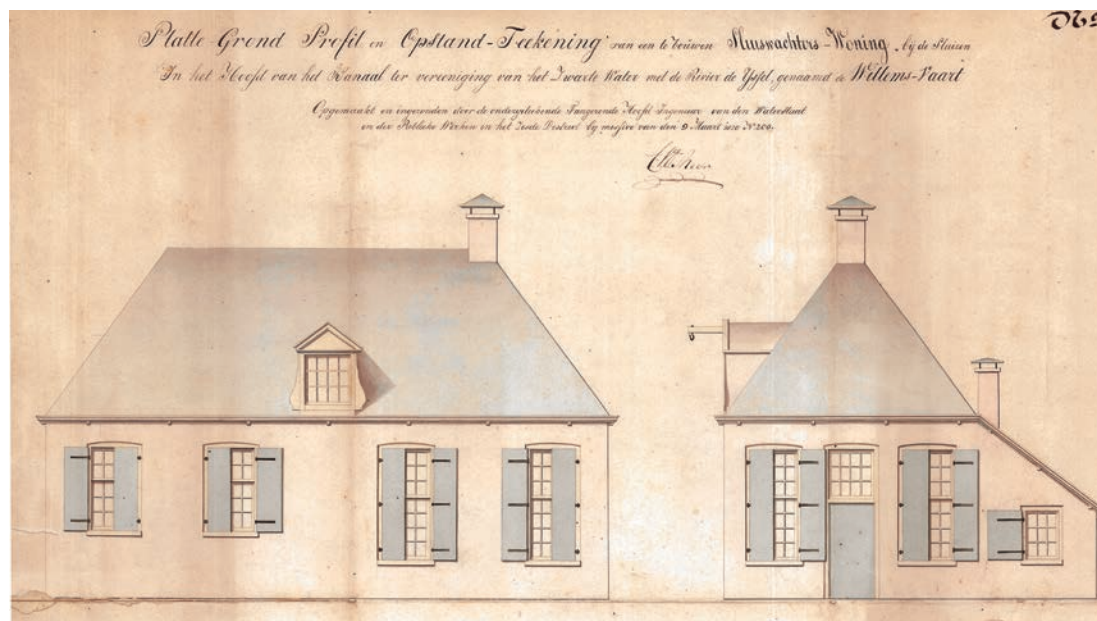 Platte-Grond Profil en Opstand-Teekening van een te bouwen Sluiswachters-Woning, bij de Sluizen
In het Hoofd van het Kanaal ter vereeniging van het Zwarte Water met de Rivier de Yssel, genaamd de Willems-Vaart
Opgemaakt en ingezonden door de ondergeteekende Fungerende Hoofd-Ingenieur van den Waterstaat
en der Publieke Werken in het District by missive van den 9 Maart